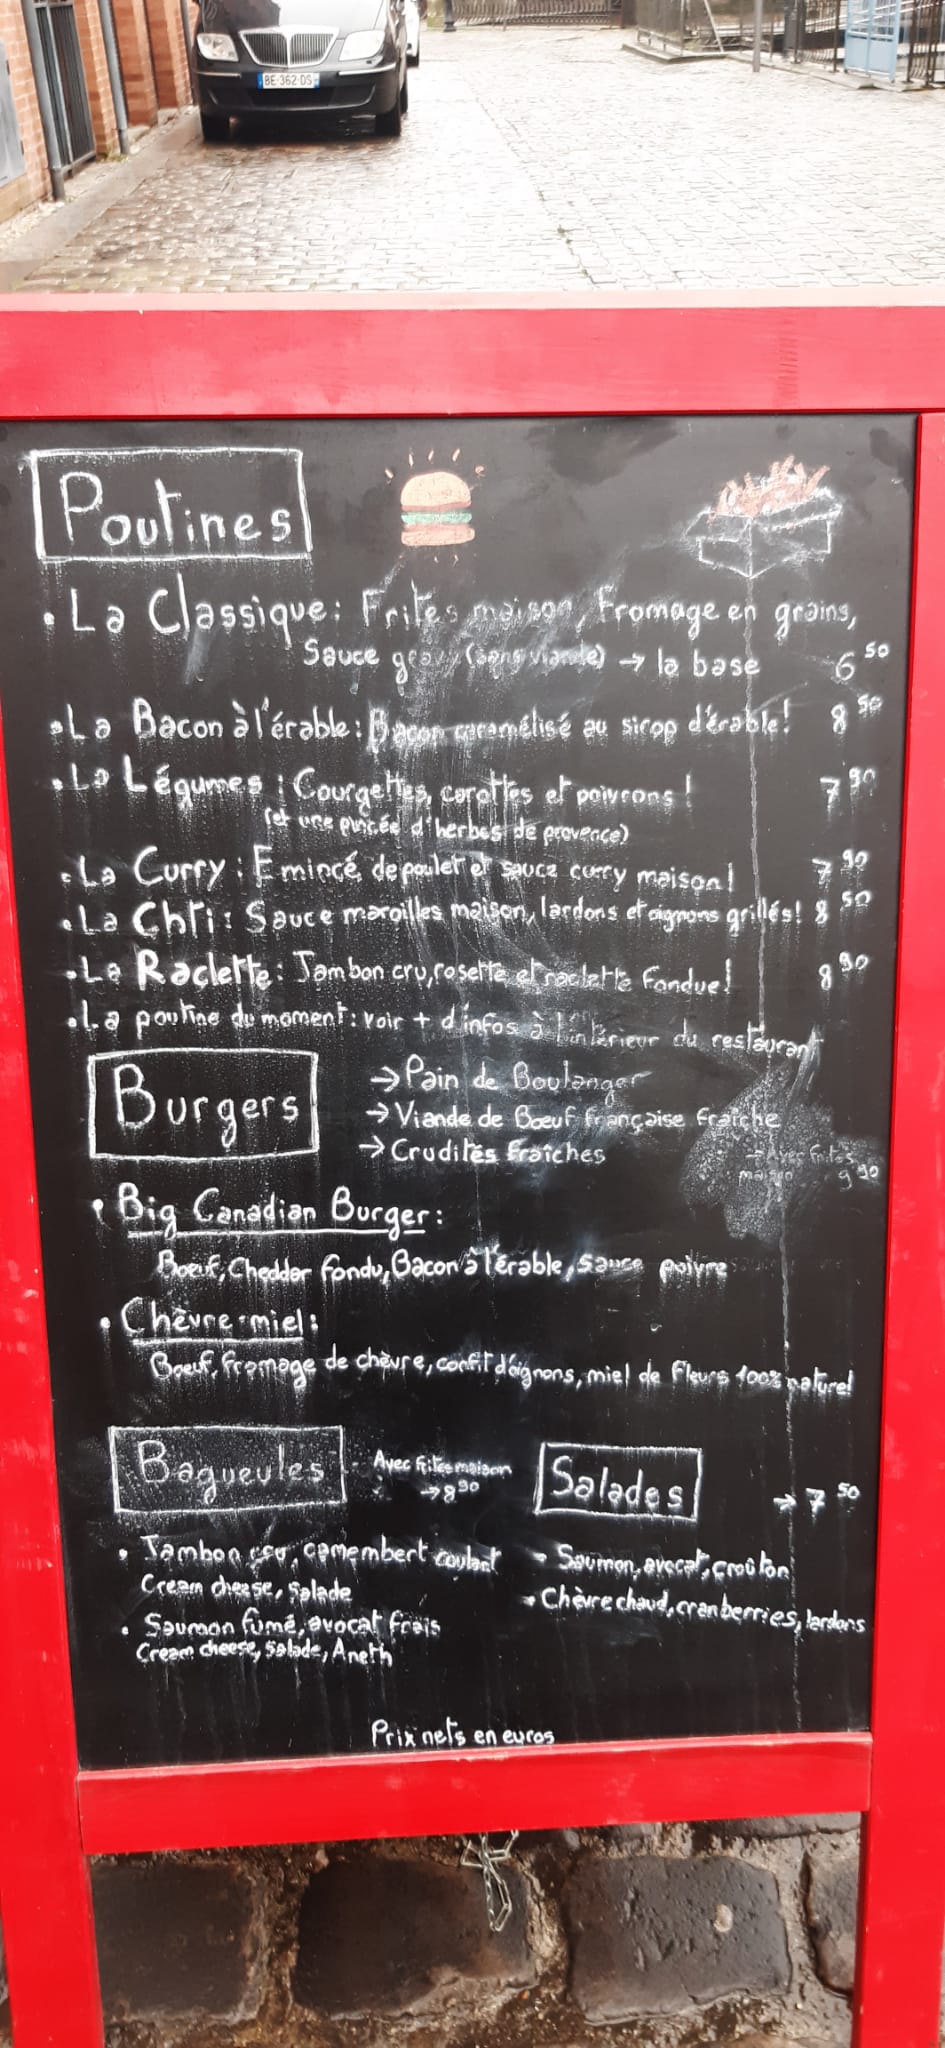 BE-362-DS
Poutines
• La Classique: Frites maison, Fromage en grains,
Sauce gravy (sans viande) → la base 6 50
• La Bacon à l'érable: Bacon caramélisé au sirop d'érable! 8 50
• La Légumes: Courgettes, carottes et poivrons! 7 90
(et une pincée d'herbes de provence)
• La Curry: Emincé de poulet et sauce curry maison! 7 90
• La Chti: Sauce maroilles maison, lardons et oignons grillés! 8 50
• La Raclette: Jambon cru, rosette et raclette Fondue! 8 90
• La poutine du moment: voir + d'infos à l'intérieur du restaurant
Burgers
→ Pain de Boulanger
→ Viande de Bœuf française fraîche
→ Crudités Fraîches
→ Avec frites
maison 9 90
• Big Canadian Burger:
Bœuf, Cheddar fondu, Bacon à l'érable, sauce poivre
• Chèvre-miel:
Bœuf, fromage de chèvre, confit d'oignons, miel de fleurs 100% naturel
Bagueules
Avec frites maison
→ 8 90
• Jambon cru, camembert coulant
Cream cheese, salade
• Saumon fumé, avocat frais
Cream cheese, salade, Aneth
Salades → 7 50
• Saumon, avocat, croûton
• Chèvre chaud, cranberries, lardons
Prix nets en euros